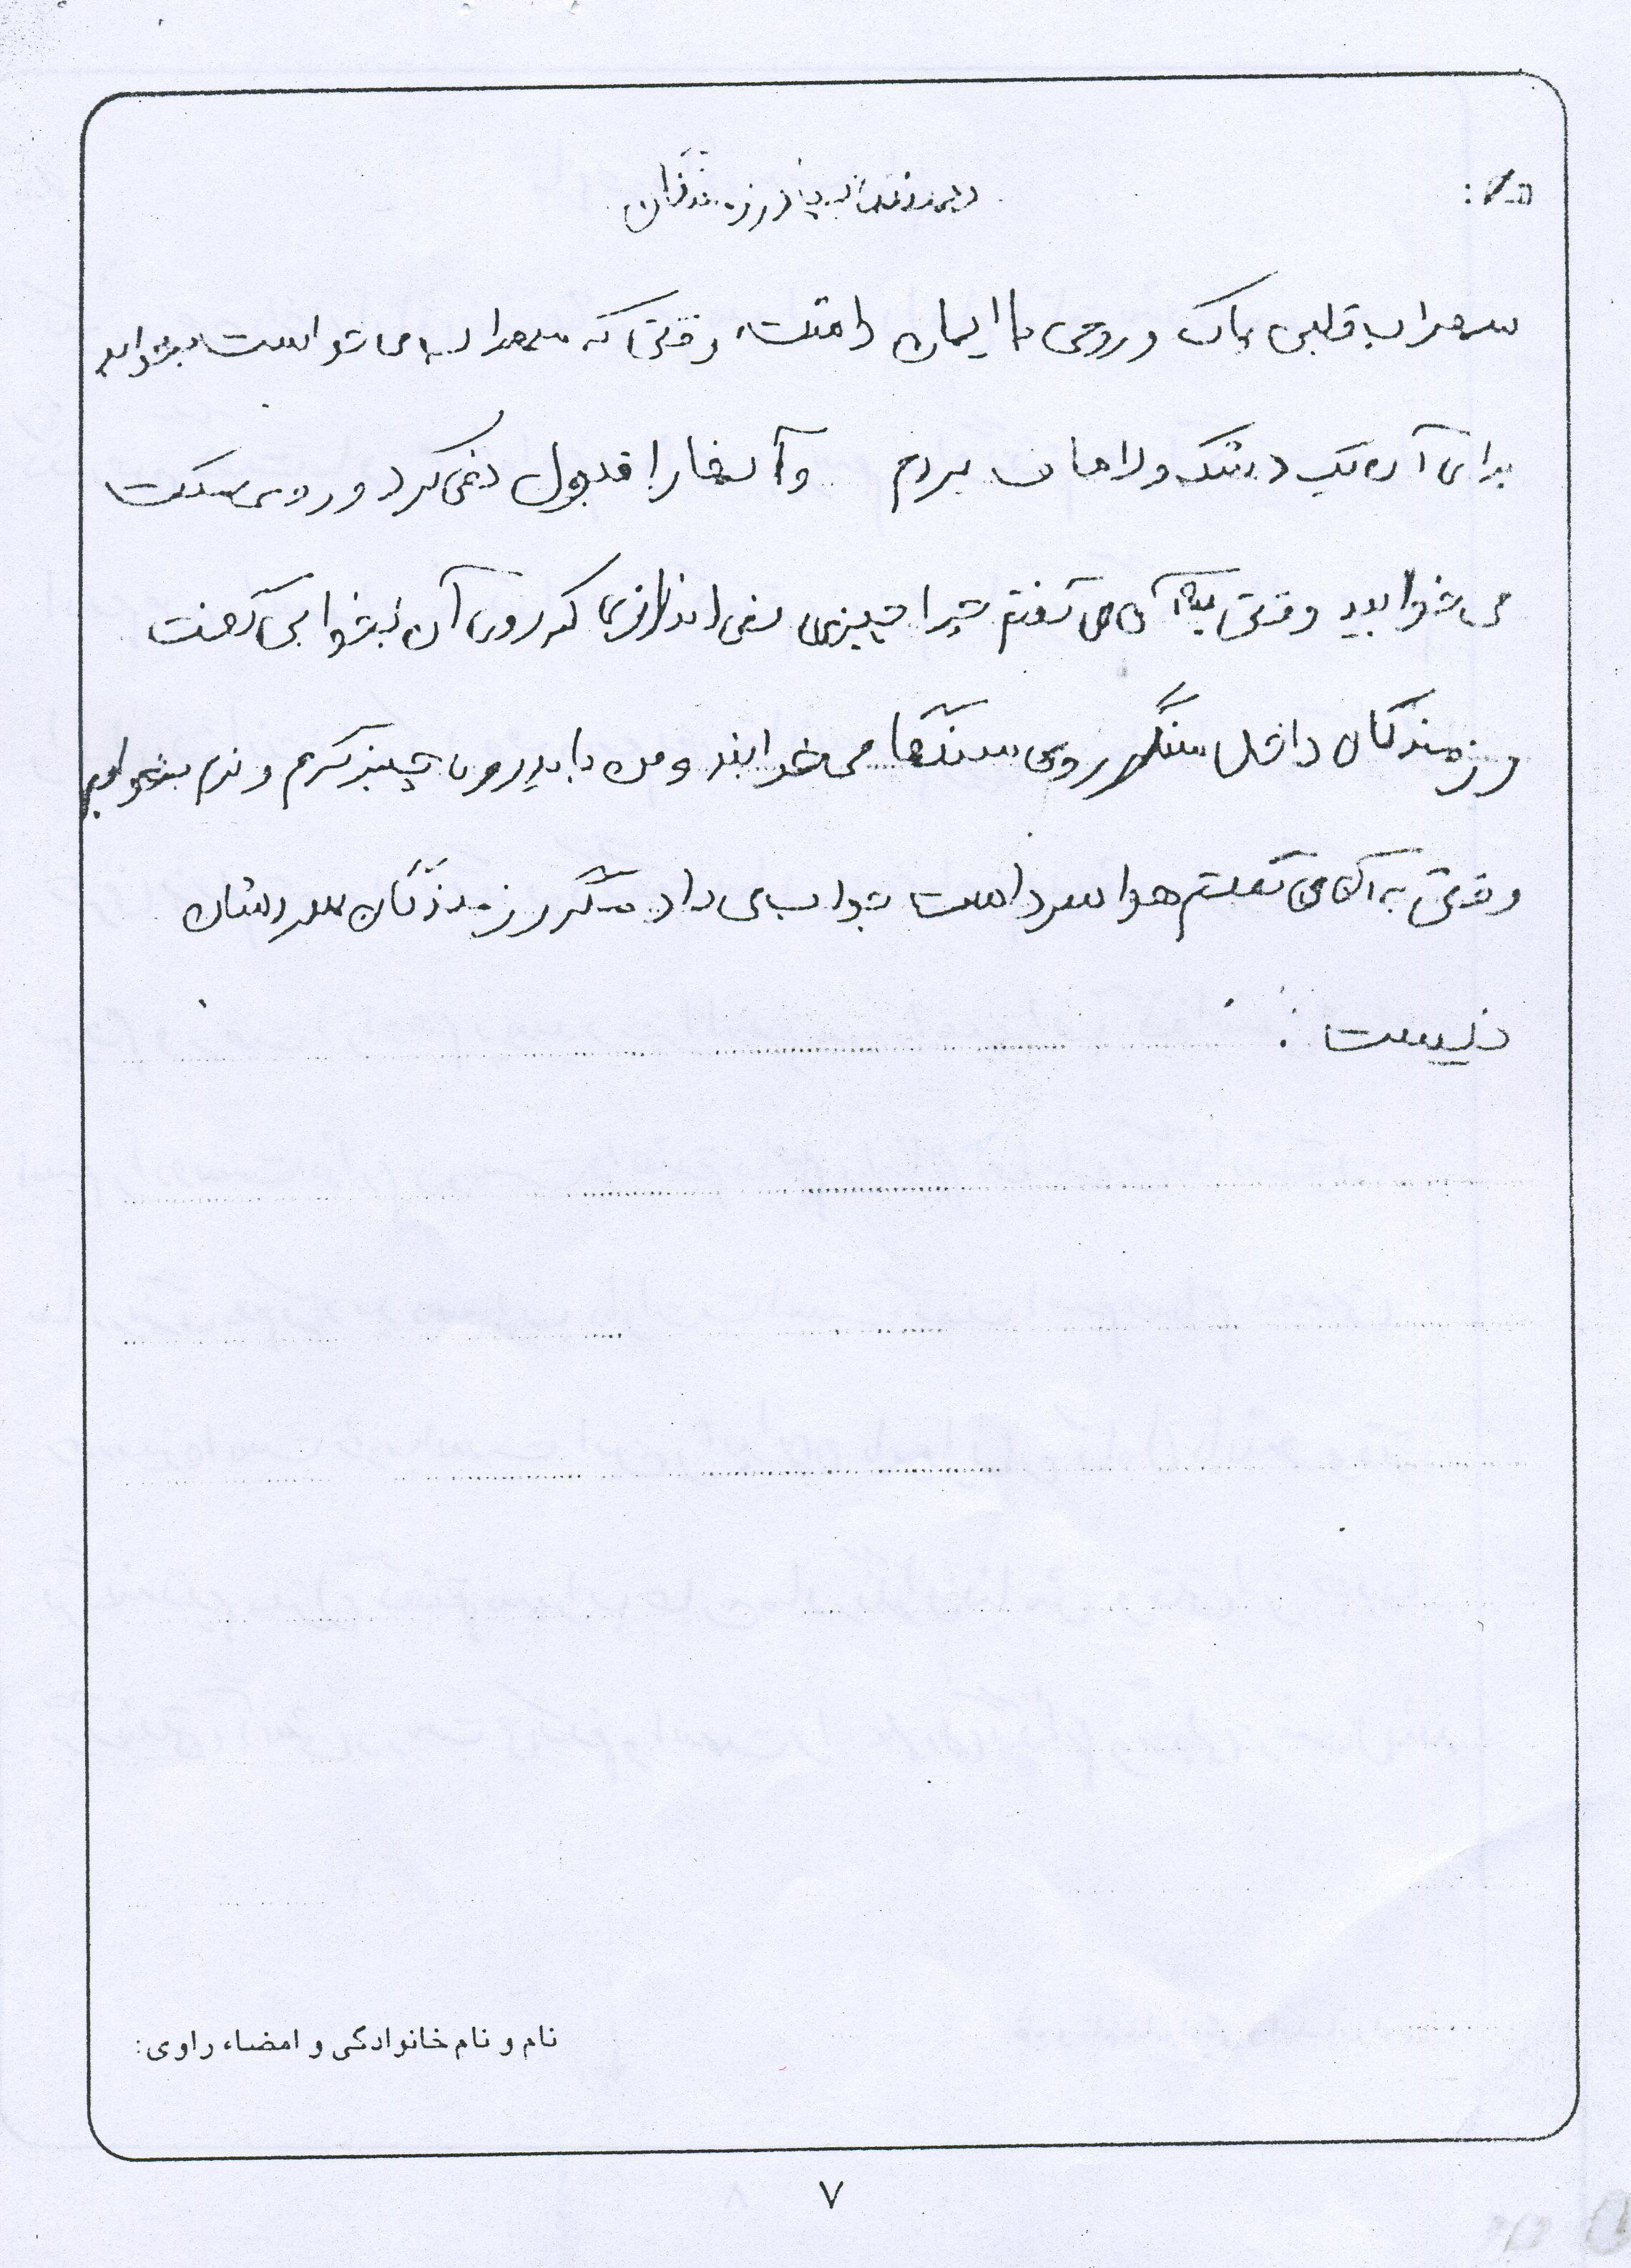 سهراب قلبی پاک و روحی با ایمان داشت، وقتی که سهراب می خواست بخوابد
برای آن یک دشک و لحاف بردم و آنها را قبول نمی کرد و روی سکت
می خوابید وقتی به آن می گفتم چرا چیزی نمی اندازی که روی آن بخوابی گفت
رزمندگان داخل سنگر روی سنگها می خوابند و من باید روی چیز گرم و نرم بخوابم
وقتی به آن می گفتم هوا سرد است جواب می داد مگر رزمندگان سردشان
نیست .
نام و نام خانوادگی و امضاء راوی:
۷